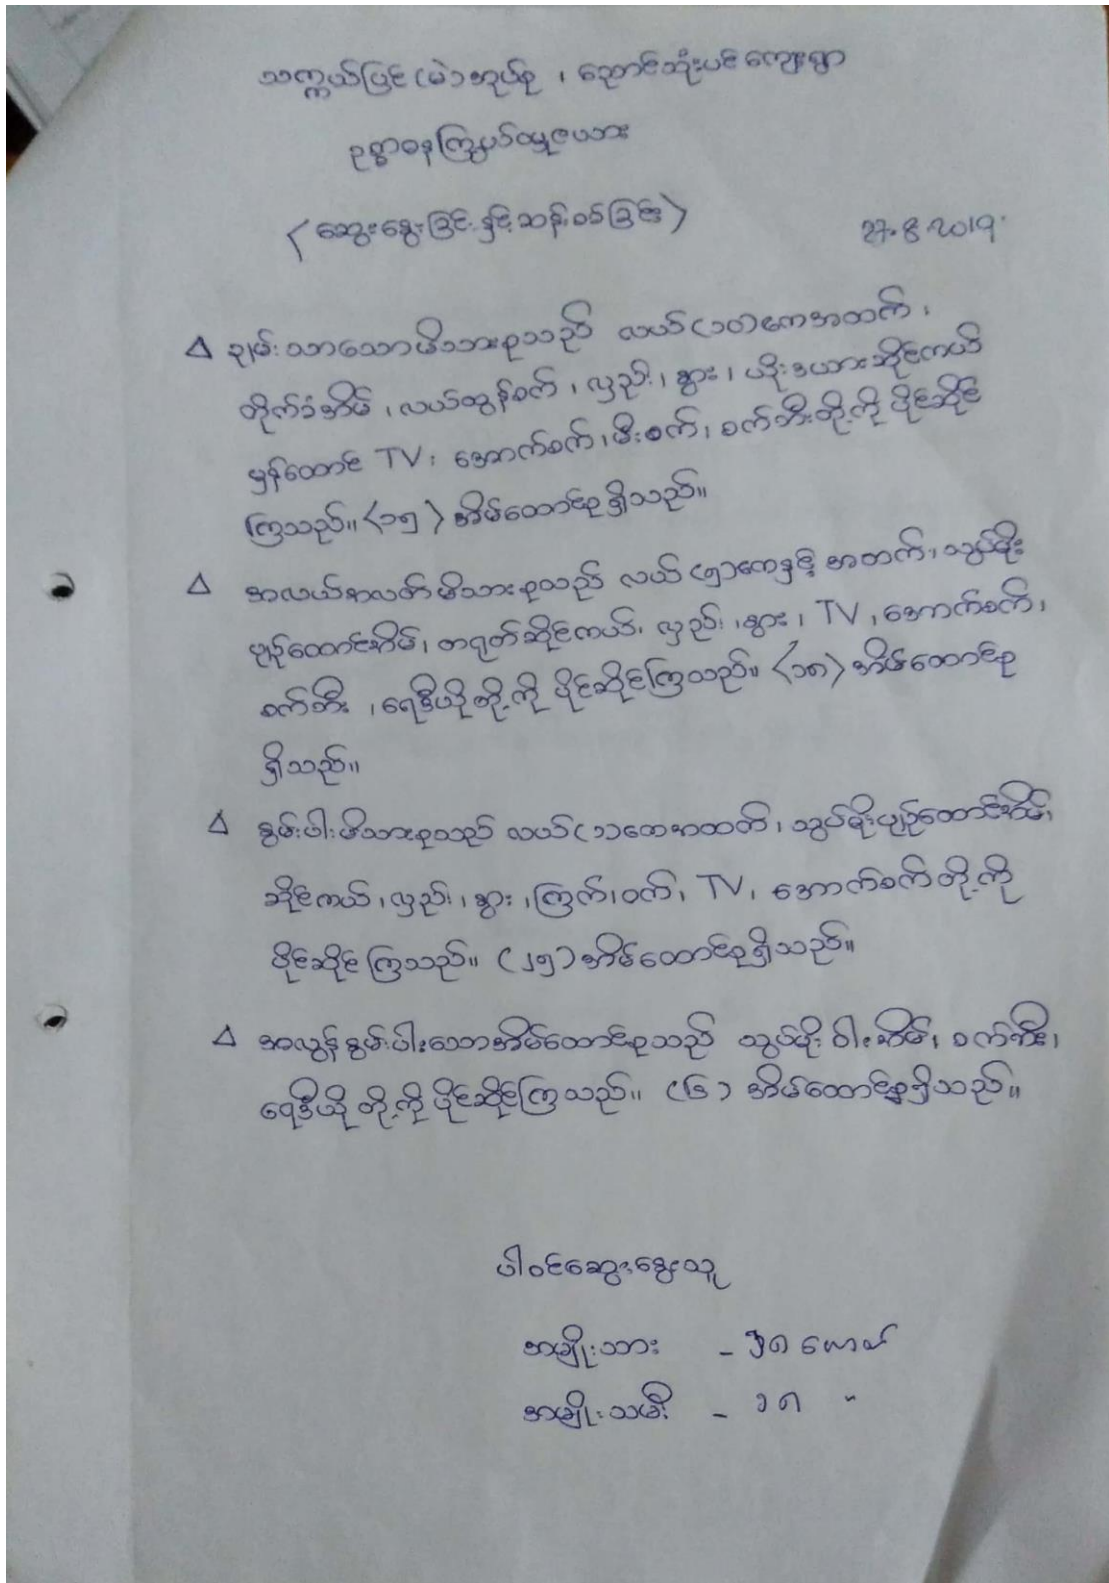 သက္ကယ်ပြင် (မဲ) အုပ်စု ၊ ညောင်သုံးပင် ကျေးရွာ
ဥစ္စာဓနကြွယ်ဝမှုဇယား
(ဆွေးနွေးခြင်း နှင့် ဆန်းစစ်ခြင်း) 27.8.2019
Δ ချမ်းသာသောမိသားစုသည် လယ် (၁၀) ဧကအထက် ၊
တိုက်ခံအိမ် ၊ လယ်ထွန်စက် ၊ လှည်း ၊ နွား ၊ ယိုးဒယားဆိုင်ကယ်
မှန်ထောင် TV ၊ အောက်စက် ၊ မီးစက် ၊ စက်ဘီးတို့ကို ပိုင်ဆိုင်
ကြသည်။ (၁၅) အိမ်ထောင်စု ရှိသည်။
Δ အလယ်အလတ်မိသားစုသည် လယ် (၅) ဧကနှင့် အထက် ၊ သွပ်မိုး
ပျဉ်ထောင်အိမ် ၊ တရုတ်ဆိုင်ကယ် ၊ လှည်း ၊ နွား ၊ TV ၊ အောက်စက် ၊
စက်ဘီး ၊ ရေဒီယို တို့ကို ပိုင်ဆိုင်ကြသည်။ (၁၈) အိမ်ထောင်စု
ရှိသည်။
Δ နွမ်းပါးမိသားစုသည် လယ် (၁) ဧကအထက် ၊ သွပ်မိုးပျဉ်ထောင်အိမ် ၊
ဆိုင်ကယ် ၊ လှည်း ၊ နွား ၊ ကြက် ၊ ဝက် ၊ TV ၊ အောက်စက် တို့ကို
ပိုင်ဆိုင် ကြသည်။ (၂၅) အိမ်ထောင်စုရှိသည်။
Δ အလွန်နွမ်းပါးသောအိမ်ထောင်စုသည် သွပ်မိုး ဝါးအိမ် ၊ စက်ဘီး ၊
ရေဒီယို တို့ကို ပိုင်ဆိုင်ကြသည်။ (၆) အိမ်ထောင်စုရှိသည်။
ပါဝင်ဆွေးနွေးသူ
အမျိုးသား - ယောက်
အမျိုးသမီး - ၁၈ "